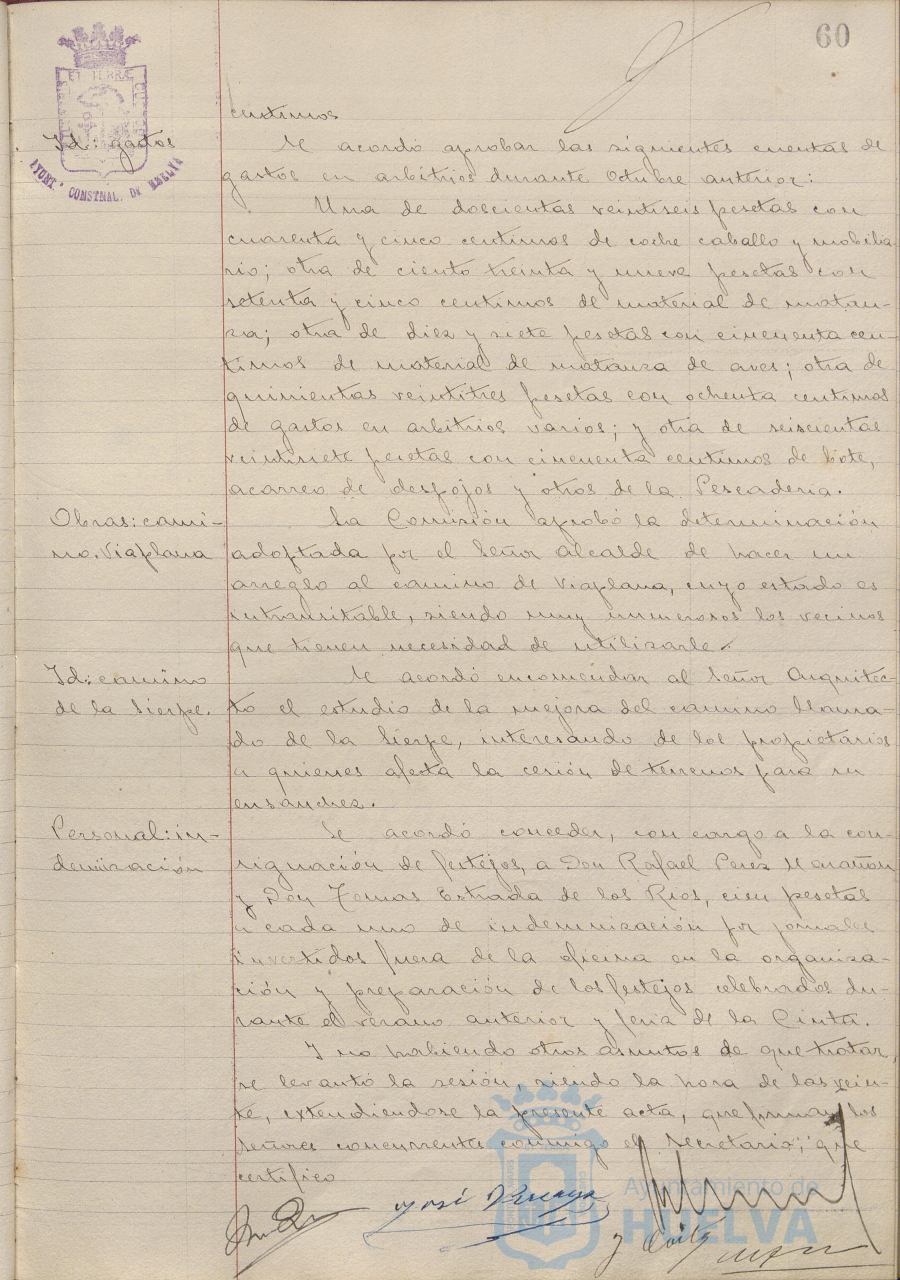 60
ET TERRÆ
AYUNT° CONSTNAL. DE HUELVA
centimos
Id: gastos
Se acordó aprobar las siguientes cuentas de
gastos en arbitrios durante Octubre anterior:
Una de doscientas veintiseis pesetas con
cuarenta y cinco centimos de coche caballo y mobilia-
rio; otra de ciento treinta y nueve pesetas con
setenta y cinco centimos de material de matan-
za; otra de diez y siete pesetas con cincuenta cen-
timos de material de matanza de aves; otra de
quinientas veintitres pesetas con ochenta centimos
de gastos en arbitrios varios; y otra de seiscientas
veintisiete pesetas con cincuenta centimos de bote,
acarreo de despojos y otros de la Pescaderia.
Obras: cami-
no Viaplana
La Comisión aprobó la determinación
adoptada por el Señor Alcalde de hacer un
arreglo al camino de Viaplana, cuyo estado es
intransitable, siendo muy numerosos los vecinos
que tienen necesidad de utilizarle.
Id: camino
de la Sierpe.
Se acordó encomendar al Señor Arquitec-
to el estudio de la mejora del camino llama-
do de la Sierpe, interesando de los propietarios
a quienes afecta la cesión de terrenos para su
ensanchez.
Personal: in-
demnización
Se acordó conceder, con cargo a la con-
signación de festejos, a Don Rafael Perez Marañon
y Don Tomas Estrada de los Rios, cien pesetas
a cada uno de indemnización por jornales
invertidos fuera de la oficina en la organiza-
ción y preparación de los festejos celebrados du-
rante el verano anterior y feria de la Cinta.
Y no habiendo otros asuntos de que tratar,
se levantó la sesión, siendo la hora de las vein-
te, extendiendose la presente acta, que firman los
señores concurrentes conmigo el Secretario; que
certifico
José
Ayuntamiento de
HUELVA